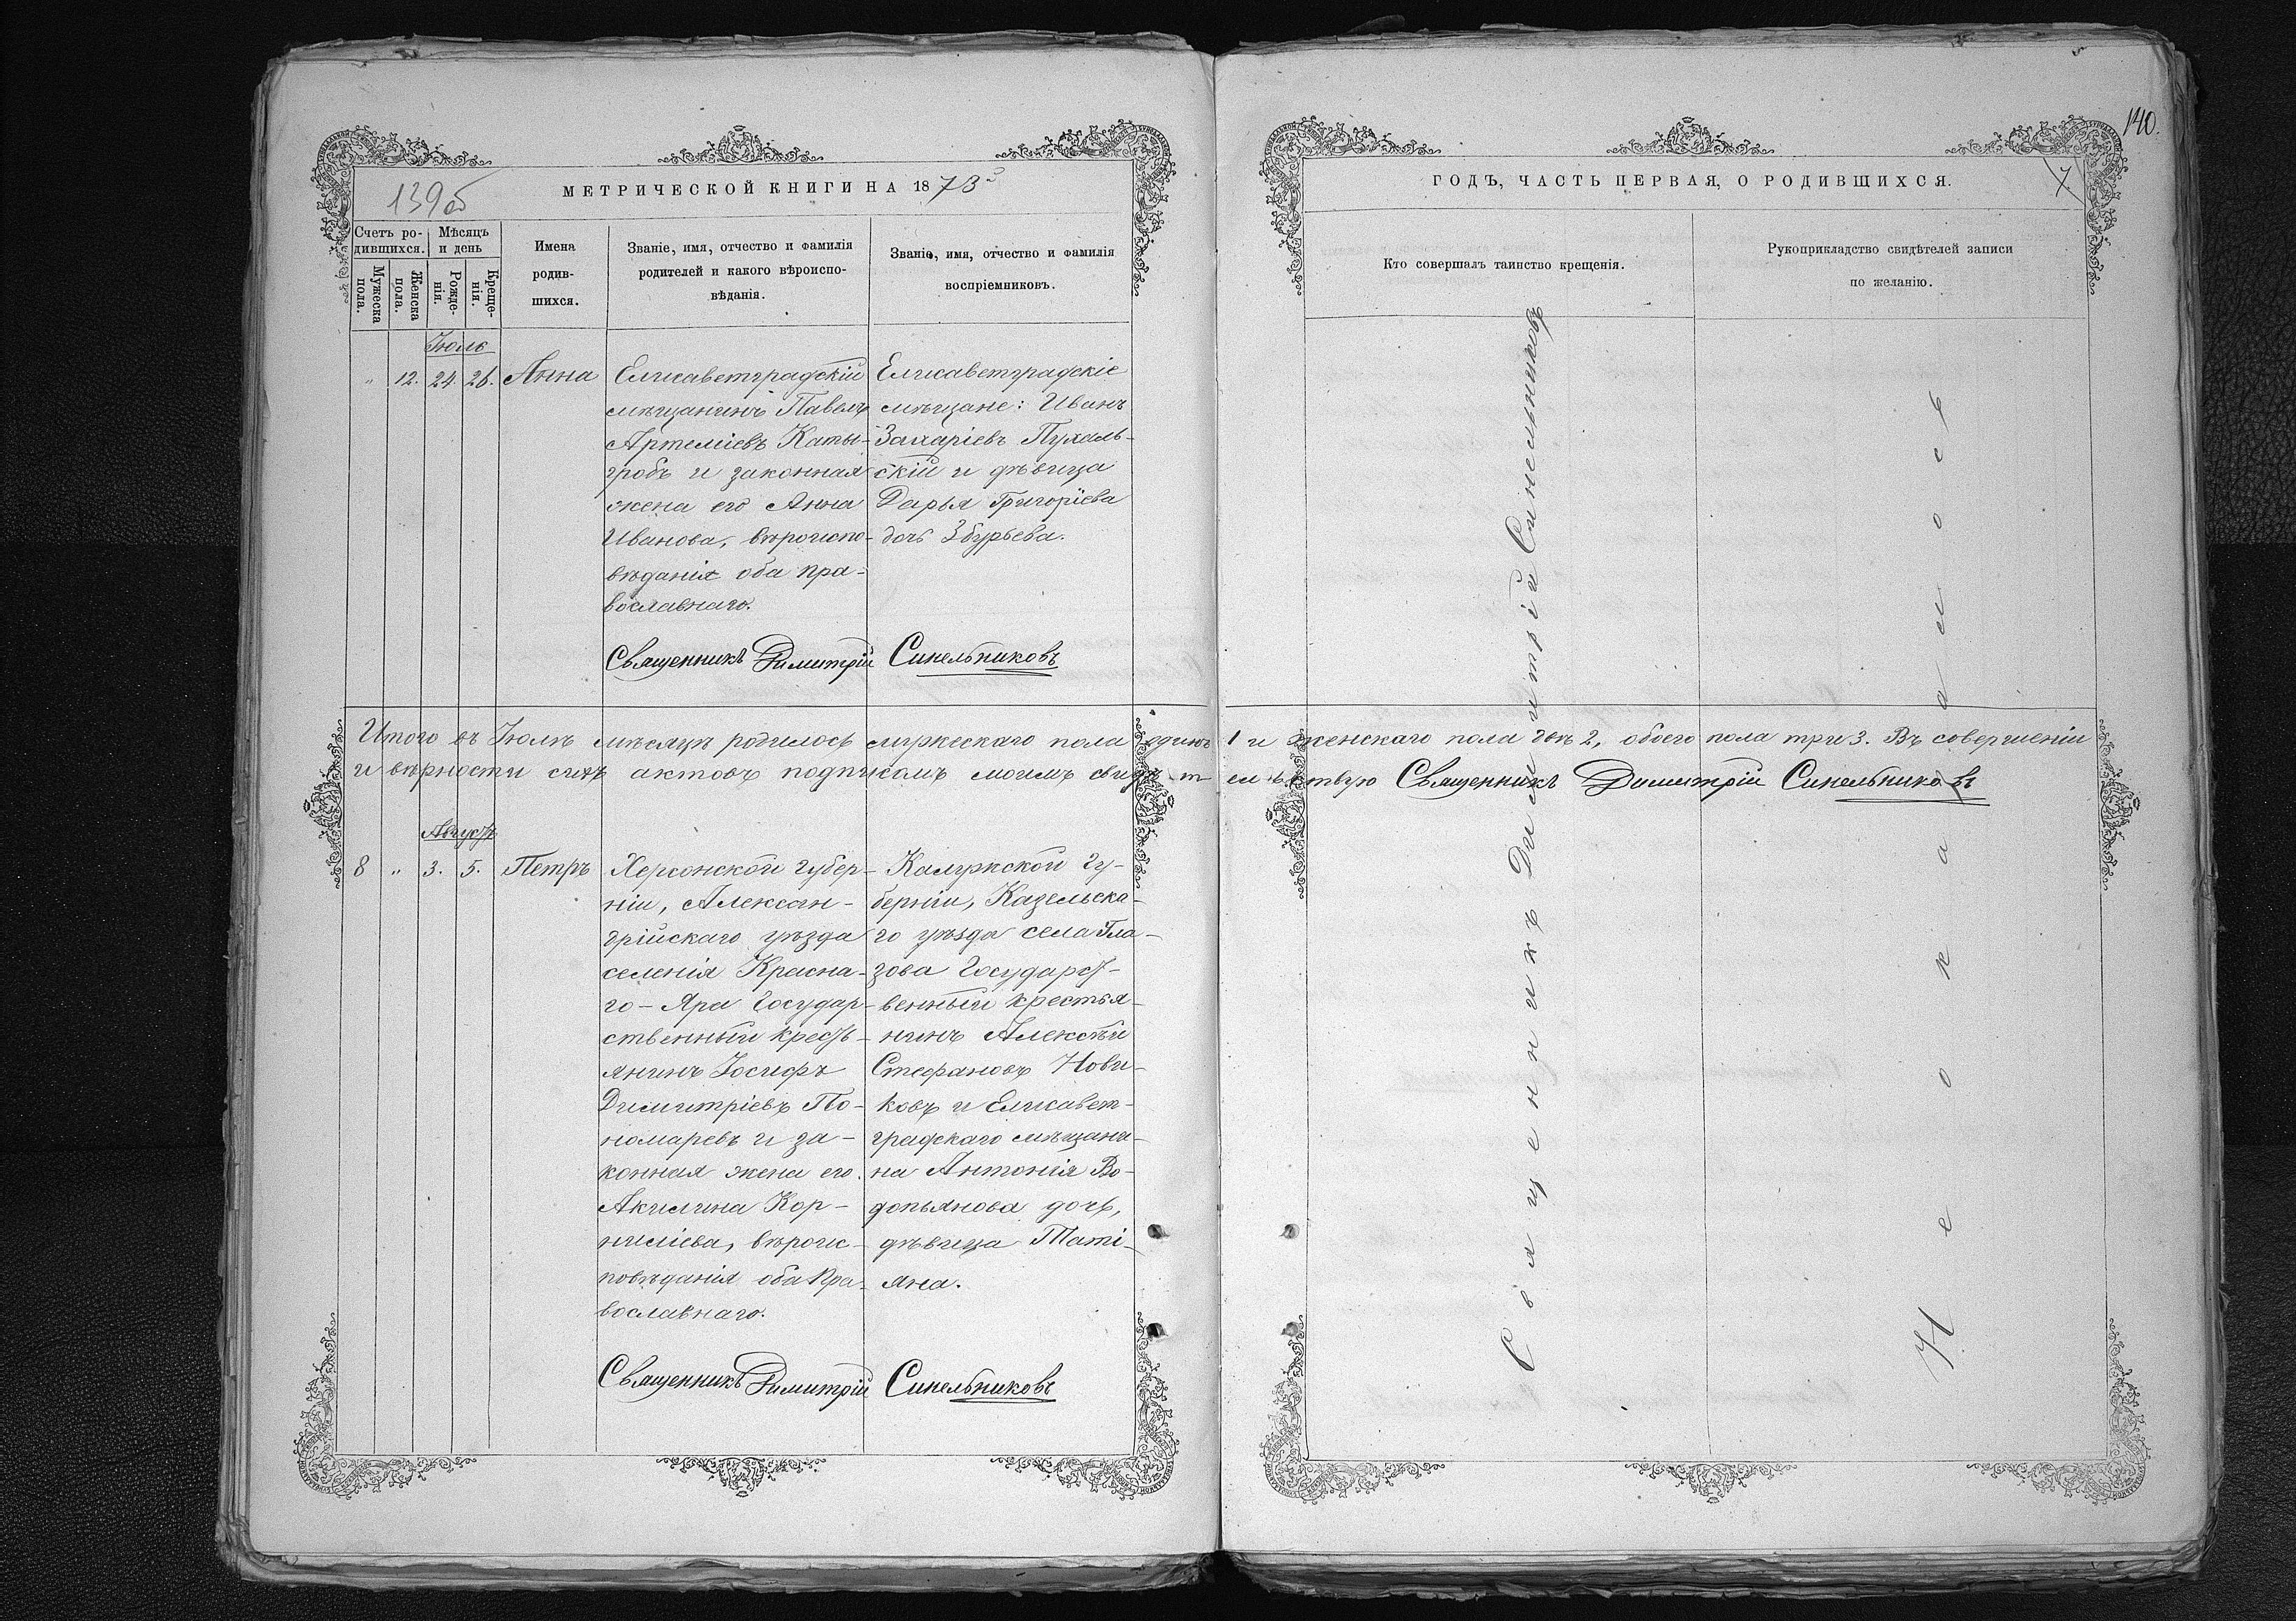 139об
МЕТРИЧЕСКОЙ КНИГИ НА 1873й
Счетъ ро-
дившихся.
Мѣсяцъ
и день
Мужеска
пола.
Женска
пола.
Рожде-
нія.
Креще-
нія.
Имена
родив-
шихся.
Званіе, имя, отчество и фамилія
родителей и какого вѣроиспо-
вѣданія.
Званіе, имя, отчество и фамилія
воспріемниковъ.
Іюль
" 12. 24. 26. Анна
Елисаветградскій
мѣщанинъ Павелъ
Артеміевъ Каты-
гробъ и законная
жена его Анна
Иванова, вѣроиспо-
вѣданія оба пра-
вославнаго.
Елисаветградскіе
мѣщане: Иванъ
Захаріевъ Пухаль-
скій и дѣвица
Дарья Григоріева
дочь Збурьева.
Священникъ Димитрій Синельниковъ
Итого въ Іюлѣ мѣсяцѣ родилось мужескаго пола одинъ 1 и женскаго пола двѣ 2, обоего пола три 3. Въ совершеніи
и вѣрности сихъ актовъ подписомъ моимъ свидѣтельствую Священникъ Димитрій Синельниковъ
Августъ
8 " 3. 5. Петръ
Херсонской губер-
ніи, Алексан-
дрійскаго уѣзда
селенія Красна-
го-Яра Государ-
ственный кресть-
янинъ Іосифъ
Димитріевъ По-
номаревъ и за-
конная жена его
Акилина Кор-
ниліева, вѣроис-
повѣданія оба пра-
вославнаго.
Калужской гу-
берніи, Казельска-
го уѣзда села Гла-
зова Государст-
венный крестья-
нинъ Алексѣй
Стефановъ Нови-
ковъ и Елисавет-
градскаго мѣщани-
на Антонія Во-
допьянова дочь,
дѣвица Таті-
яна.
Священникъ Димитрій Синельниковъ
140.
7.
ГОДЪ, ЧАСТЬ ПЕРВАЯ, О РОДИВШИХСЯ.
Кто совершалъ таинство крещенія.
Рукоприкладство свидѣтелей записи
по желанію.
Священникъ Димитрій Синельниковъ
Не оказалось